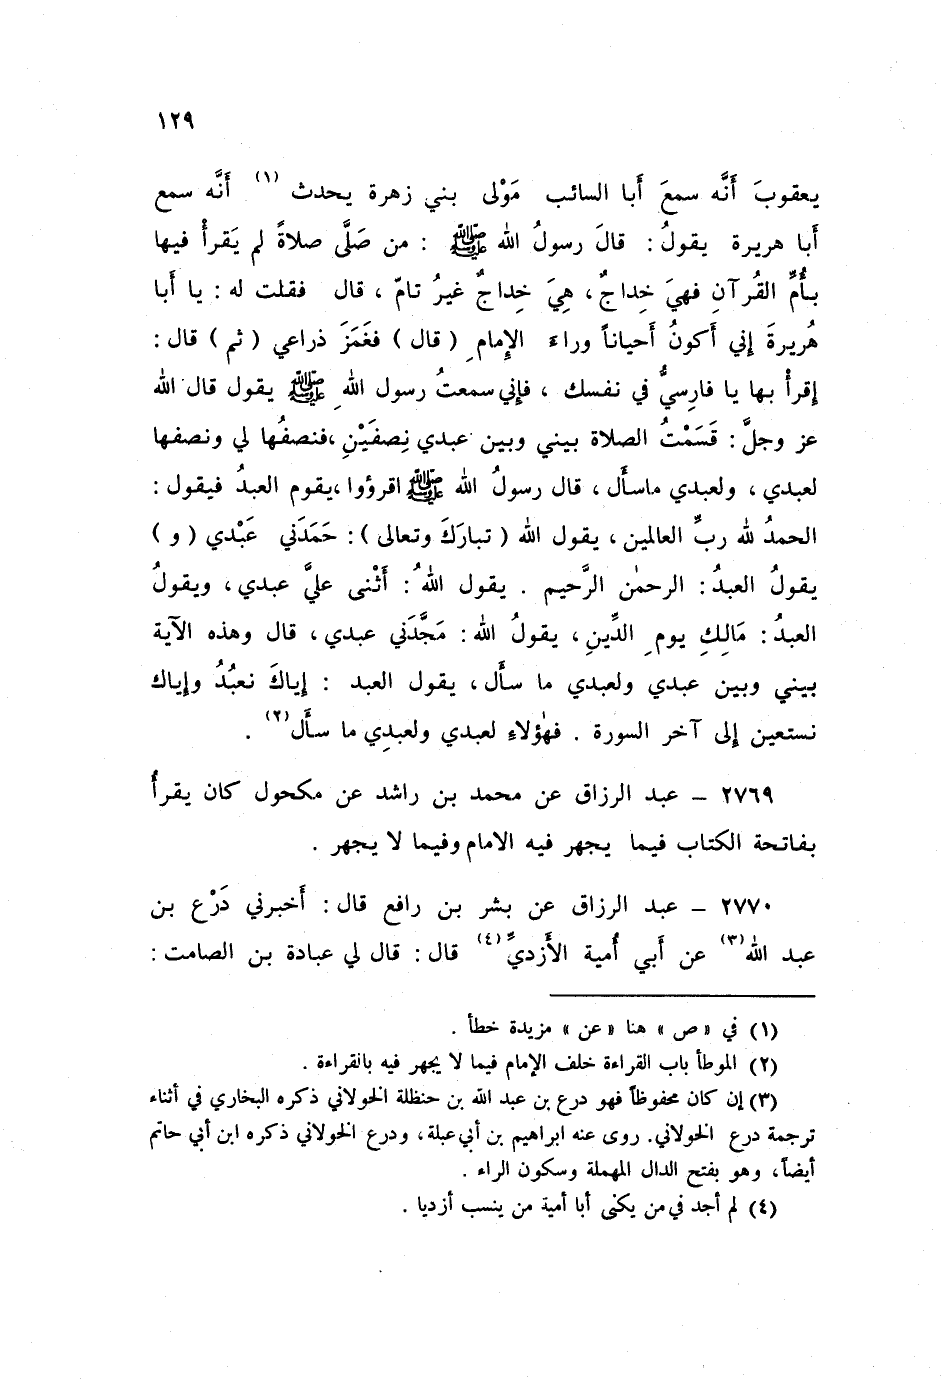 ١٢٩
يعقوبَ أَنَّه سمعَ أَبا السائب مَوْلى بني زهرة يحدث (١) أَنَّه سمع
أَبا هريرة يقولُ : قالَ رسولُ الله ﷺ : من صَلَّى صلاةً لم يَقرأْ فيها
بأُمِّ القُرآنِ فهيَ خِداجٌ ، هِيَ خِداجٌ غيرُ تامّ ، قال فقلت له : يا أَبا
هُريرةَ إني أَكونُ أَحياناً وراءَ الإِمامِ ( قال ) فغَمَزَ ذراعي ( ثم ) قال :
إقرأْ بها يا فارسيُّ في نفسك ، فإني سمعتُ رسول اللهِ ﷺ يقول قال الله
عز وجلَّ : قَسَمْتُ الصلاة بيني وبين عبدي نِصفَيْنِ ،فنصفُها لي ونصفها
لعبدي ، ولعبدي ماسأَل ، قال رسولُ الله ﷺ اقروؤا ،يقوم العبدُ فيقول :
الحمدُ لله ربِّ العالمين ، يقول الله ( تبارَكَ وتعالى ) : حَمَدَني عَبْدي ( و )
يقولُ العبدُ : الرحمٰن الرَّحيم . يقول اللهُ : أَثْنى عليَّ عبدي ، ويقولُ
العبدُ : مَالِكِ يومِ الدِّينِ ، يقولُ الله : مَجَّدَني عبدي ، قال وهذه الآية
بيني وبين عبدي ولعبدي ما سأَل ، يقول العبد : إياكَ نعبُدُ وإياك
نستعين إلى آخر السورة . فهٰؤلاءِ لعبدي ولعبدِي ما سأَل (٢) .
٢٧٦٩ - عبد الرزاق عن محمد بن راشد عن مكحول كان يقرأُ
بفاتحة الكتاب فيما يجهر فيه الامام وفيما لا يجهر .
٢٧٧٠ - عبد الرزاق عن بشر بن رافع قال : أَخبرني دَرْع بن
عبد الله (٣) عن أَبي أُمية الأَزديِّ (٤) قال : قال لي عبادة بن الصامت :
(١) في « ص » هنا « عن » مزيدة خطأ .
(٢) الموطأ باب القراءة خلف الإمام فيما لا يجهر فيه بالقراءة .
(٣) إن كان محفوظاً فهو درع بن عبد الله بن حنظلة الخولاني ذكره البخاري في أثناء
ترجمة درع الخولاني. روى عنه ابراهيم بن أبي عبلة ، ودرع الخولاني ذكره ابن أبي حاتم
أيضاً ، وهو بفتح الدال المهملة وسكون الراء .
(٤) لم أجد في من يكنى أبا أمية من ينسب أزديا .